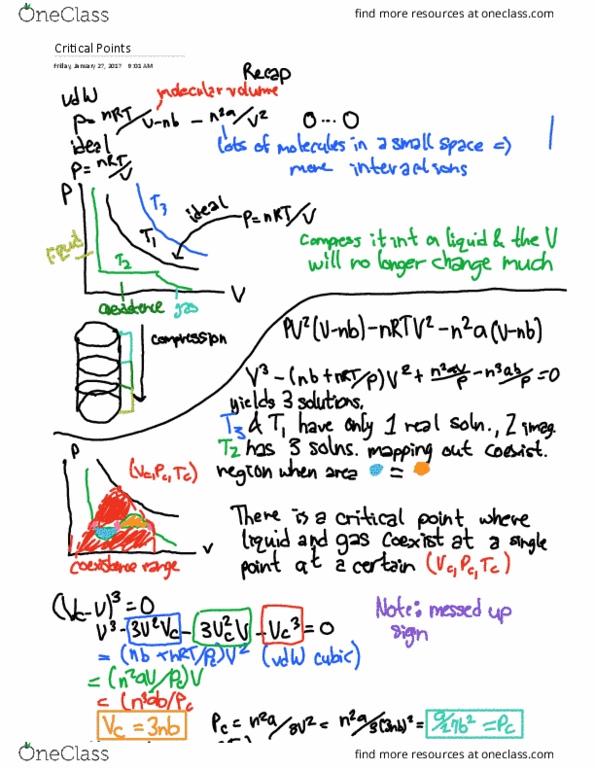 OneClass
find more resources at oneclass.com
Critical Points
Friday, January 27, 2017 9:03 AM
Recap
vdW
molecular volume
P= nRT/V-nb - n²a/V²
O...O
ideal
P= nRT/V
lots of molecules in a small space =>
more interactions
P
T3
ideal
P=nRT/V
T1
T2
liquid
V
coexistence
gas
compress it int a liquid & the V
will no longer change much
compression
PV²(V-nb)-nRTV²-n²a(V-nb)
V³-(nb+nRT/P)V²+n²aV/P-n³ab/P=0
yields 3 solutions.
T3 & T1 have only 1 real soln., 2 imag.
T2 has 3 solns. mapping out coexist.
region when area =
P
(Vc,Pc,Tc)
V
coexistence range
There is a critical point where
liquid and gas coexist at a single
point at a certain (Vc,Pc,Tc)
(Vc-V)³=0
V³-3V²Vc-3Vc²V-Vc³=0
Note: messed up
sign
=(nb+nRT/Pc)V² (vdW cubic)
=(n²aV/Pc)V
=(n³ab/Pc
Vc=3nb
Pc=n²a/3V²=n²a/3(3nb)²=a/27b²=Pc
OneClass
find more resources at oneclass.com